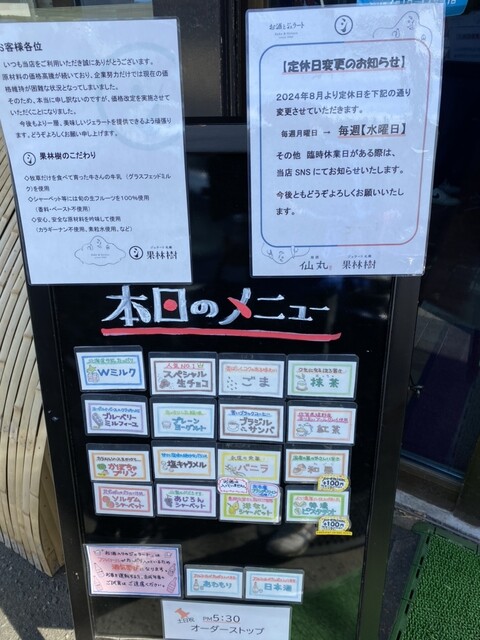 お客様各位
いつも当店をご利用いただき誠にありがとうございます。
原材料の価格高騰が続いており、企業努力だけでは現在の価
格維持が困難な状況となってしまいました。
そのため、本当に申し訳ないのですが、価格改定を実施させて
いただくことになりました。
今後もより一層、美味しいジェラートを提供できるよう頑張り
ます。どうぞよろしくお願い申し上げます。
果林樹のこだわり
◇牧草だけを食べて育った牛さんの牛乳 (グラスフェッドミル
ク)を使用
◇シャーベット等には旬の生フルーツを100%使用
(香料・ペースト不使用)
◇安心、安全な原材料を吟味して使用
(カラギーナン不使用、素粒水使用、など)
果林樹
お酒とジェラート
【定休日変更のお知らせ】
2024年8月より定休日を下記の通り
変更させていただきます。
毎週月曜日 → 毎週【水曜日】
その他 臨時休業日がある際は、
当店SNSにてお知らせいたします。
今後ともどうぞよろしくお願いいたし
ます。
仙丸 果林樹
本日のメニュー
Wミルク
人気No.1
スペシャル
生チョコ
ごま
抹茶
ブルーベリー
ミルフィーユ
プレーン
ヨーグルト
ブラジル
サンバ
紅茶
かぼちゃ
プリン
塩キャラメル
バニラ
和栗
+100円
ソルダム
シャーベット
あじろん
シャーベット
洋なし
シャーベット
特濃
ピスタチオ
+100円
あわもり
日本酒
PM5:30
オーダーストップ